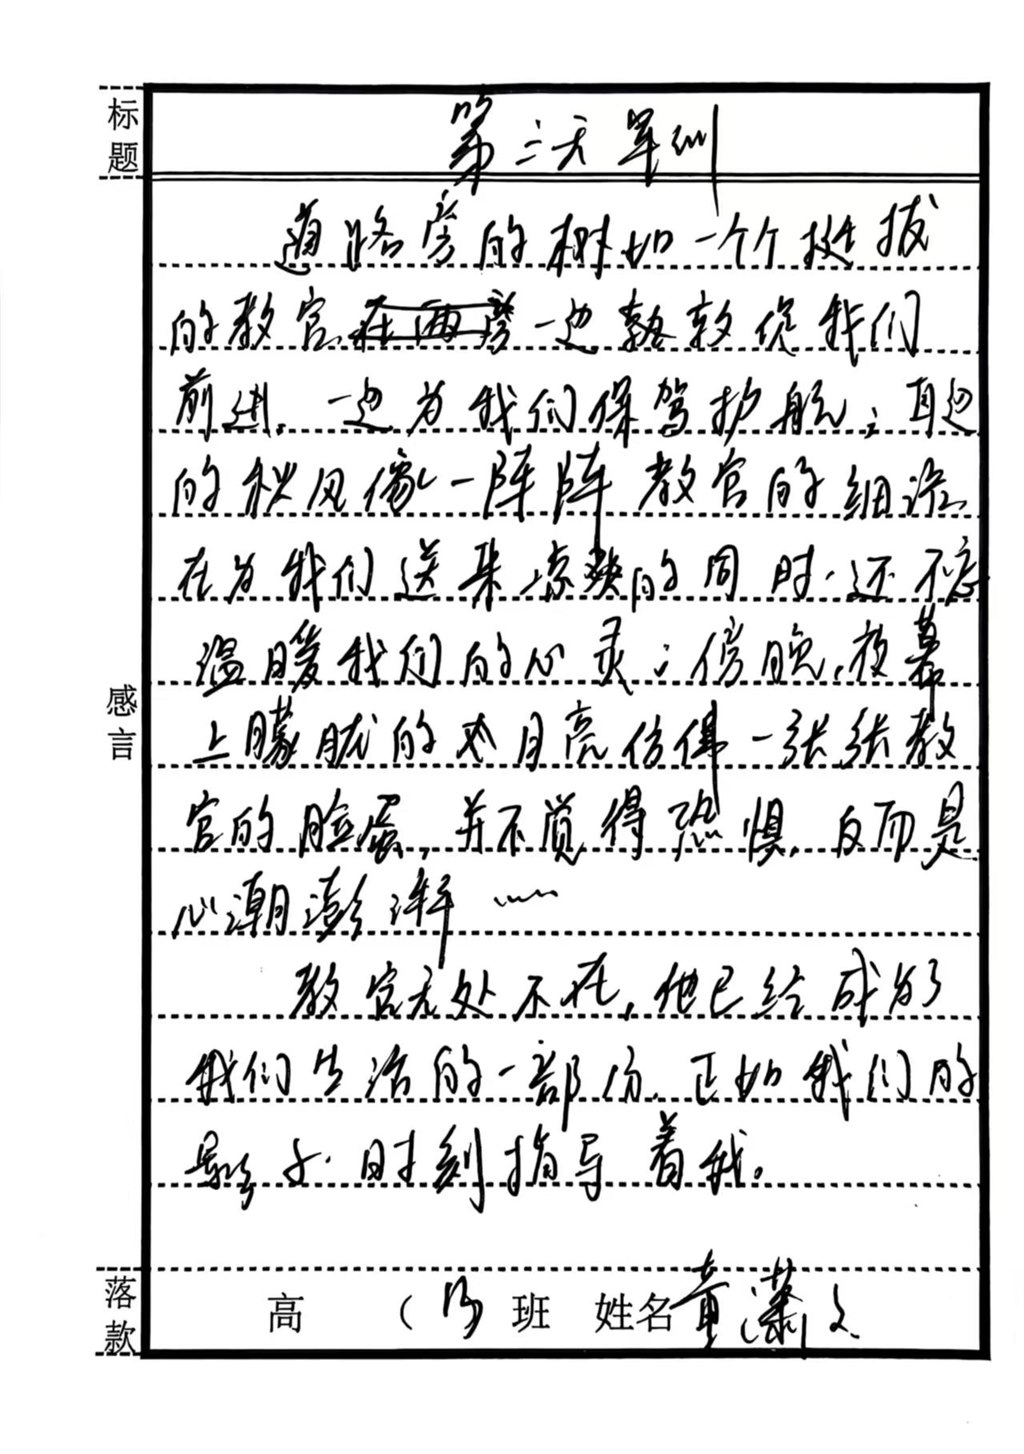 标题
第三天军训
道路旁的树如一个个挺拔
的教官一边鞭敦促我们
前进。一边为我们保驾护航；耳边
的秋风像一阵阵教官的细语
在为我们送来凉爽的同时.还不忘
温暖我们的心灵；傍晚,夜幕
上朦胧的月亮仿佛一张张教
官的脸蛋,并不觉得恐惧,反而是
心潮澎湃……
感言
教官无处不在,他已给成为了
我们生活的一部份.正如我们的
影子.时刻指导着我。
落款
高 ( 13 班 姓名 章潇文